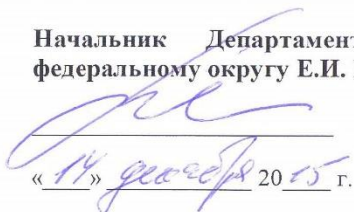 Начальник Департамент
федеральному округу Е.И.
«14» декабря 2015 г.